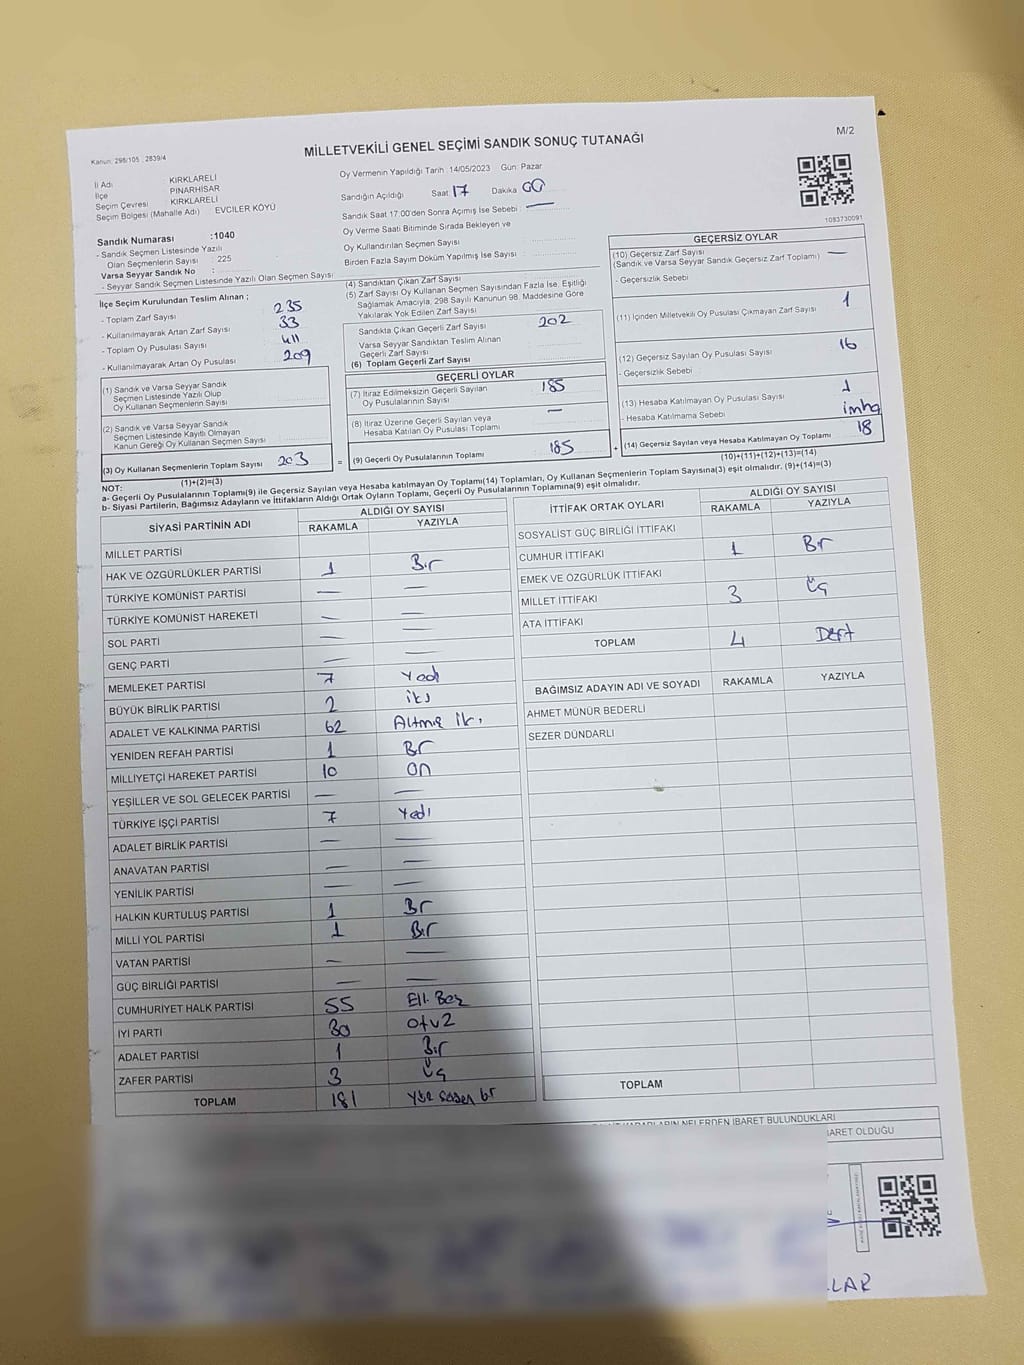 MİLLETVEKİLİ GENEL SEÇİMİ SANDIK SONUÇ TUTANAĞI
M/2
Kanun: 298/105 ; 2839/4
İl Adı KIRKLARELİ
İlçe PINARHİSAR
Seçim Çevresi KIRKLARELİ
Seçim Bölgesi (Mahalle Adı) EVCİLER KÖYÜ
Sandık Numarası :1040
- Sandık Seçmen Listesinde Yazılı
Olan Seçmenlerin Sayısı : 225
Varsa Seyyar Sandık No :
- Seyyar Sandık Seçmen Listesinde Yazılı Olan Seçmen Sayısı
Oy Vermenin Yapıldığı Tarih : 14/05/2023 Gün: Pazar
Sandığın Açıldığı Saat 17 Dakika 00
Sandık Saat 17:00'den Sonra Açımış İse Sebebi : —
Oy Verme Saati Bitiminde Sırada Bekleyen ve
Oy Kullandırılan Seçmen Sayısı
Birden Fazla Sayım Döküm Yapılmış İse Sayısı :
1083730091
İlçe Seçim Kurulundan Teslim Alınan ;
- Toplam Zarf Sayısı 235
- Kullanılmayarak Artan Zarf Sayısı 33
- Toplam Oy Pusulası Sayısı 411
- Kullanılmayarak Artan Oy Pusulası 209
(1) Sandık ve Varsa Seyyar Sandık
Seçmen Listesinde Yazılı Olup
Oy Kullanan Seçmenlerin Sayısı
(2) Sandık ve Varsa Seyyar Sandık
Seçmen Listesinde Kayıtlı Olmayan
Kanun Gereği Oy Kullanan Seçmen Sayısı
(3) Oy Kullanan Seçmenlerin Toplam Sayısı 203
(1)+(2)=(3)
(4) Sandıktan Çıkan Zarf Sayısı
(5) Zarf Sayısı Oy Kullanan Seçmen Sayısından Fazla İse, Eşitliği
Sağlamak Amacıyla, 298 Sayılı Kanunun 98. Maddesine Göre
Yakılarak Yok Edilen Zarf Sayısı
Sandıkta Çıkan Geçerli Zarf Sayısı 202
Varsa Seyyar Sandıktan Teslim Alınan
Geçerli Zarf Sayısı
(6) Toplam Geçerli Zarf Sayısı
GEÇERLİ OYLAR
(7) İtiraz Edilmeksizin Geçerli Sayılan
Oy Pusulalarının Sayısı 185
(8) İtiraz Üzerine Geçerli Sayılan veya
Hesaba Katılan Oy Pusulası Toplamı —
= (9) Geçerli Oy Pusulalarının Toplamı 185
GEÇERSİZ OYLAR
(10) Geçersiz Zarf Sayısı
(Sandık ve Varsa Seyyar Sandık Geçersiz Zarf Toplamı) —
- Geçersizlik Sebebi
(11) İçinden Milletvekili Oy Pusulası Çıkmayan Zarf Sayısı 1
(12) Geçersiz Sayılan Oy Pusulası Sayısı 16
- Geçersizlik Sebebi
(13) Hesaba Katılmayan Oy Pusulası Sayısı 1
- Hesaba Katılmama Sebebi imha
+ (14) Geçersiz Sayılan veya Hesaba Katılmayan Oy Toplamı 18
(10)+(11)+(12)+(13)=(14)
NOT:
a- Geçerli Oy Pusulalarının Toplamı(9) ile Geçersiz Sayılan veya Hesaba katılmayan Oy Toplamı(14) Toplamları, Oy Kullanan Seçmenlerin Toplam Sayısına(3) eşit olmalıdır. (9)+(14)=(3)
b- Siyasi Partilerin, Bağımsız Adayların ve İttifakların Aldığı Ortak Oyların Toplamı, Geçerli Oy Pusulalarının Toplamına(9) eşit olmalıdır.
SİYASİ PARTİNİN ADI ALDIĞI OY SAYISI
RAKAMLA YAZIYLA
MİLLET PARTİSİ
HAK VE ÖZGÜRLÜKLER PARTİSİ 1 Bir
TÜRKİYE KOMÜNİST PARTİSİ — —
TÜRKİYE KOMÜNİST HAREKETİ — —
SOL PARTİ — —
GENÇ PARTİ — —
MEMLEKET PARTİSİ 7 Yedi
BÜYÜK BİRLİK PARTİSİ 2 iki
ADALET VE KALKINMA PARTİSİ 62 Altmış iki
YENİDEN REFAH PARTİSİ 1 Bir
MİLLİYETÇİ HAREKET PARTİSİ 10 on
YEŞİLLER VE SOL GELECEK PARTİSİ — —
TÜRKİYE İŞÇİ PARTİSİ 7 Yedi
ADALET BİRLİK PARTİSİ — —
ANAVATAN PARTİSİ — —
YENİLİK PARTİSİ — —
HALKIN KURTULUŞ PARTİSİ 1 Bir
MİLLİ YOL PARTİSİ 1 Bir
VATAN PARTİSİ — —
GÜÇ BİRLİĞİ PARTİSİ — —
CUMHURİYET HALK PARTİSİ 55 Elli Beş
İYİ PARTİ 30 otuz
ADALET PARTİSİ 1 Bir
ZAFER PARTİSİ 3 Üç
TOPLAM 181 Yüz seksen bir
İTTİFAK ORTAK OYLARI ALDIĞI OY SAYISI
RAKAMLA YAZIYLA
SOSYALİST GÜÇ BİRLİĞİ İTTİFAKI
CUMHUR İTTİFAKI 1 Bir
EMEK VE ÖZGÜRLÜK İTTİFAKI
MİLLET İTTİFAKI 3 Üç
ATA İTTİFAKI
TOPLAM 4 Dört
BAĞIMSIZ ADAYIN ADI VE SOYADI RAKAMLA YAZIYLA
AHMET MÜNÜR BEDERLİ
SEZER DÜNDARLI
TOPLAM
NELERDEN İBARET BULUNDUKLARI
İBARET OLDUĞU
LAR